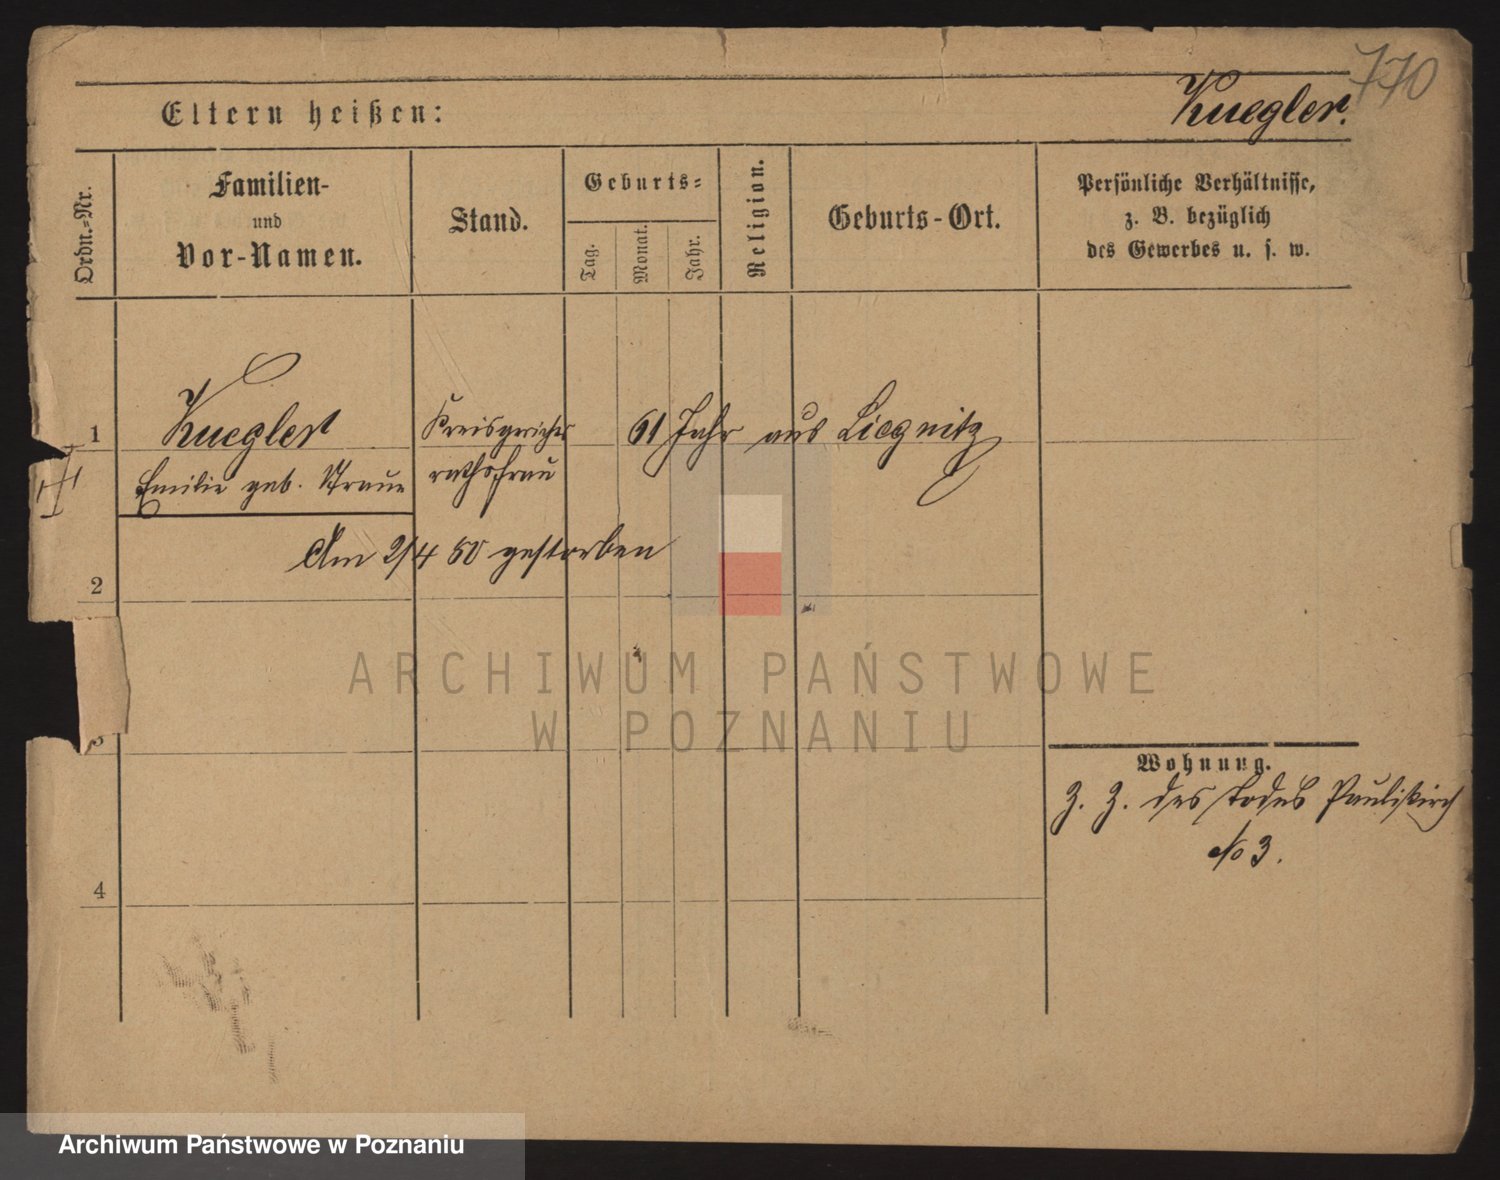 770
Kuegler.
Eltern heißen:
Ordn.-Nr.
Familien-
und
Vor-Namen.
Stand.
Geburts-
Tag.
Monat.
Jahr.
Religion.
Geburts-Ort.
Persönliche Verhältnisse,
z. B. bezüglich
des Gewerbes u. s. w.
1
Kuegler
Kreisgerichts
61 Jahr aus Liegnitz
Emilie geb.
rathsfrau
Am 2/4 80 gestorben
2
ARCHIWUM PAŃSTWOWE
W POZNANIU
3
Wohnung.
Z. Z. des Todes Paulikirch
No 3.
4
Archiwum Państwowe w Poznaniu